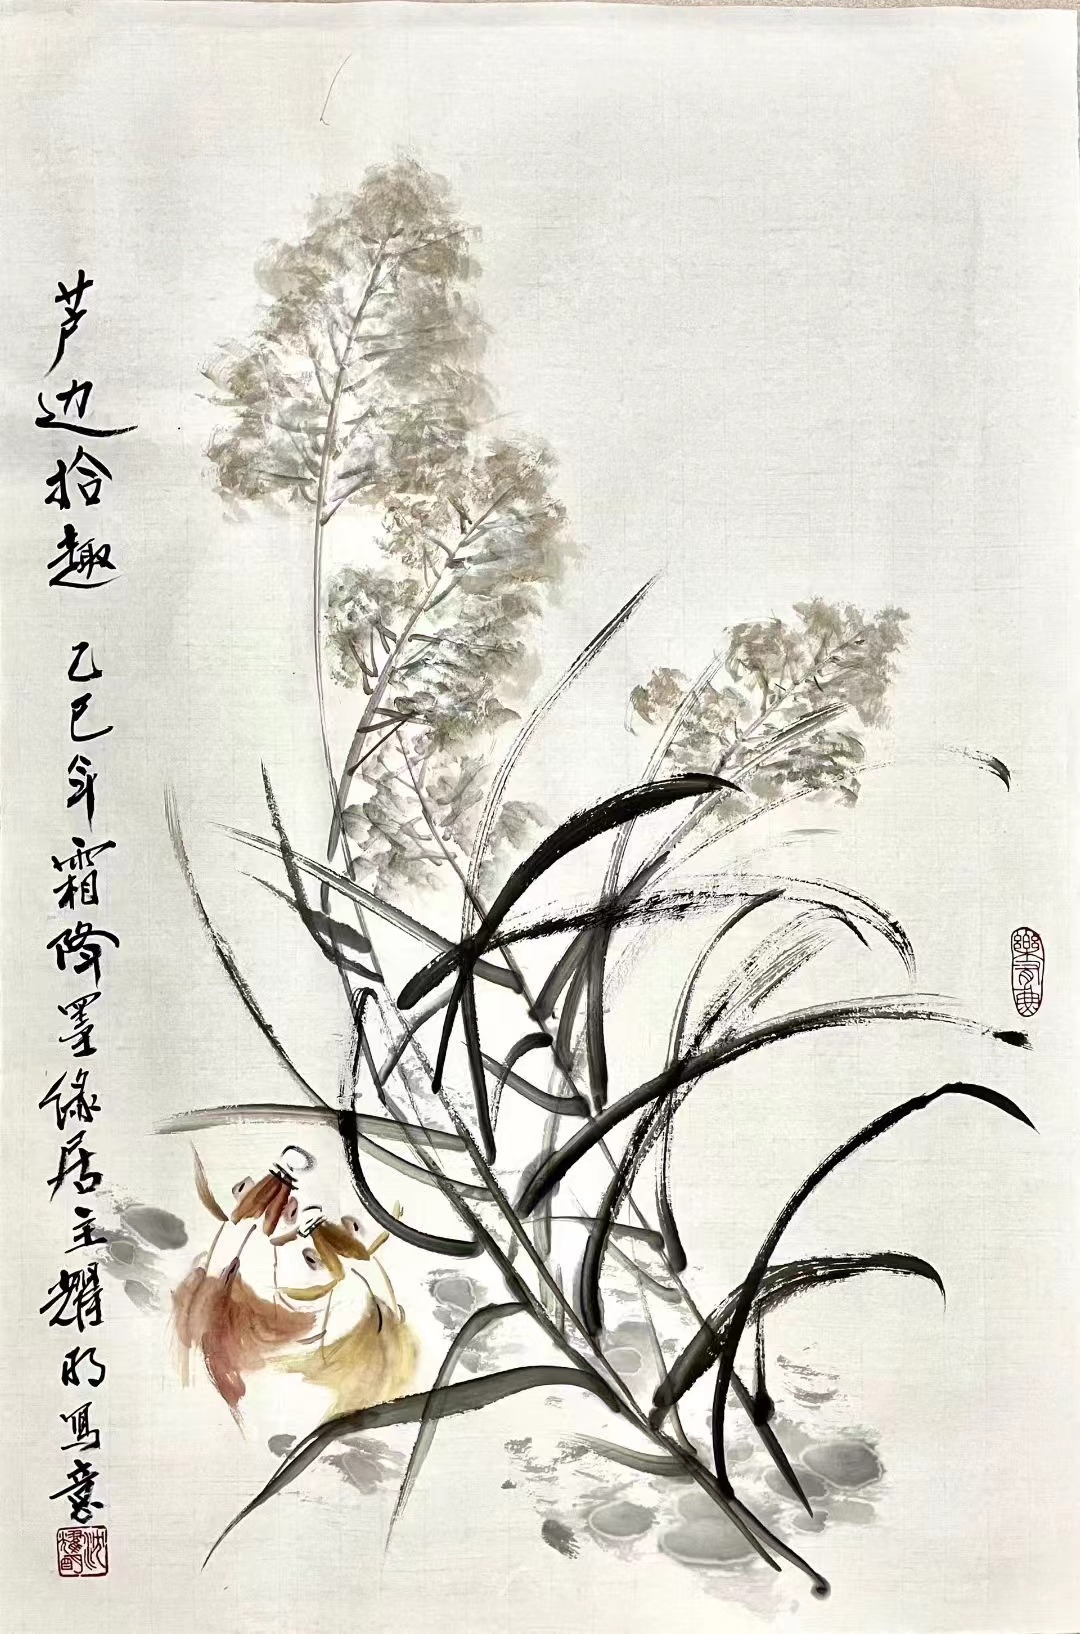 芦边拾趣 乙巳年霜降墨缘居主耀明写意